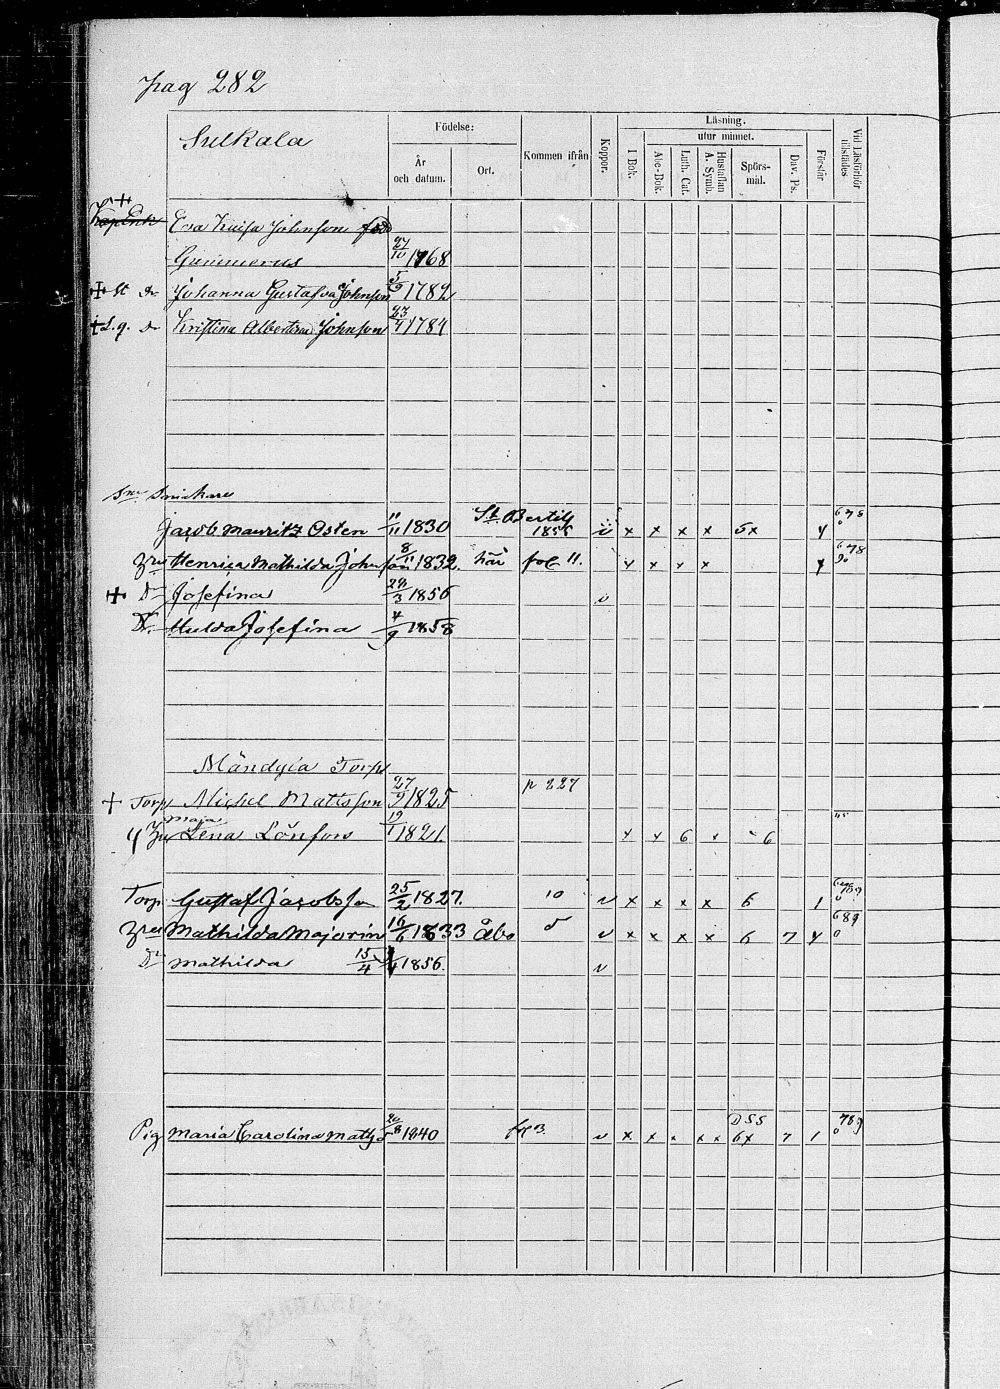 pag 282
Sulkala
Födelse:
År och datum.
Ort.
Kommen ifrån
Koppor.
Läsning.
I Bok.
utur minnet.
Abc-Bok.
Luth. Cat.
Hustaflan A. Symb.
Spörs-mål.
Dav. Ps.
Förstår
Vid Läsförhör tillstädes
Eva Kaisa Johnson född
Gummerus 27/10 1768
+ St Dr Johanna Gustafva Johnson 5/9 1782
+ S.g. Dr Kristina Albertina Johnson 23/4 1784
Snickare
St Bertils
Jacob Mauritz Osten 11/11 1830 1855 v x x x x 5x 4 678
Hru Henrica Mathilda Johnson 8/11 1832. här fol 11. x x x x 4 678
+ Dr Josefina 24/3 1856 v
Dr Hulda Josefina 4/9 1858
Mändyiä Torp
+ Torp Michel Mattsson 27/9 1825 p 227
Maja
Hu Lena Lönfors 19/1 1821. x x 6 x 6
Torp. Gustaf Jacobsso 25/2 1827. 10 v x x x x 6 1 6789
Hru Mathilda Majorin 16/6 1833 Åbo 5 v x x x x 6 7 4 689
Dr Mathilda 15/4 1856. v
D55
Pig Maria Carolina Mattsd 20/8 1840 v x x x x x 6x 7 1 789